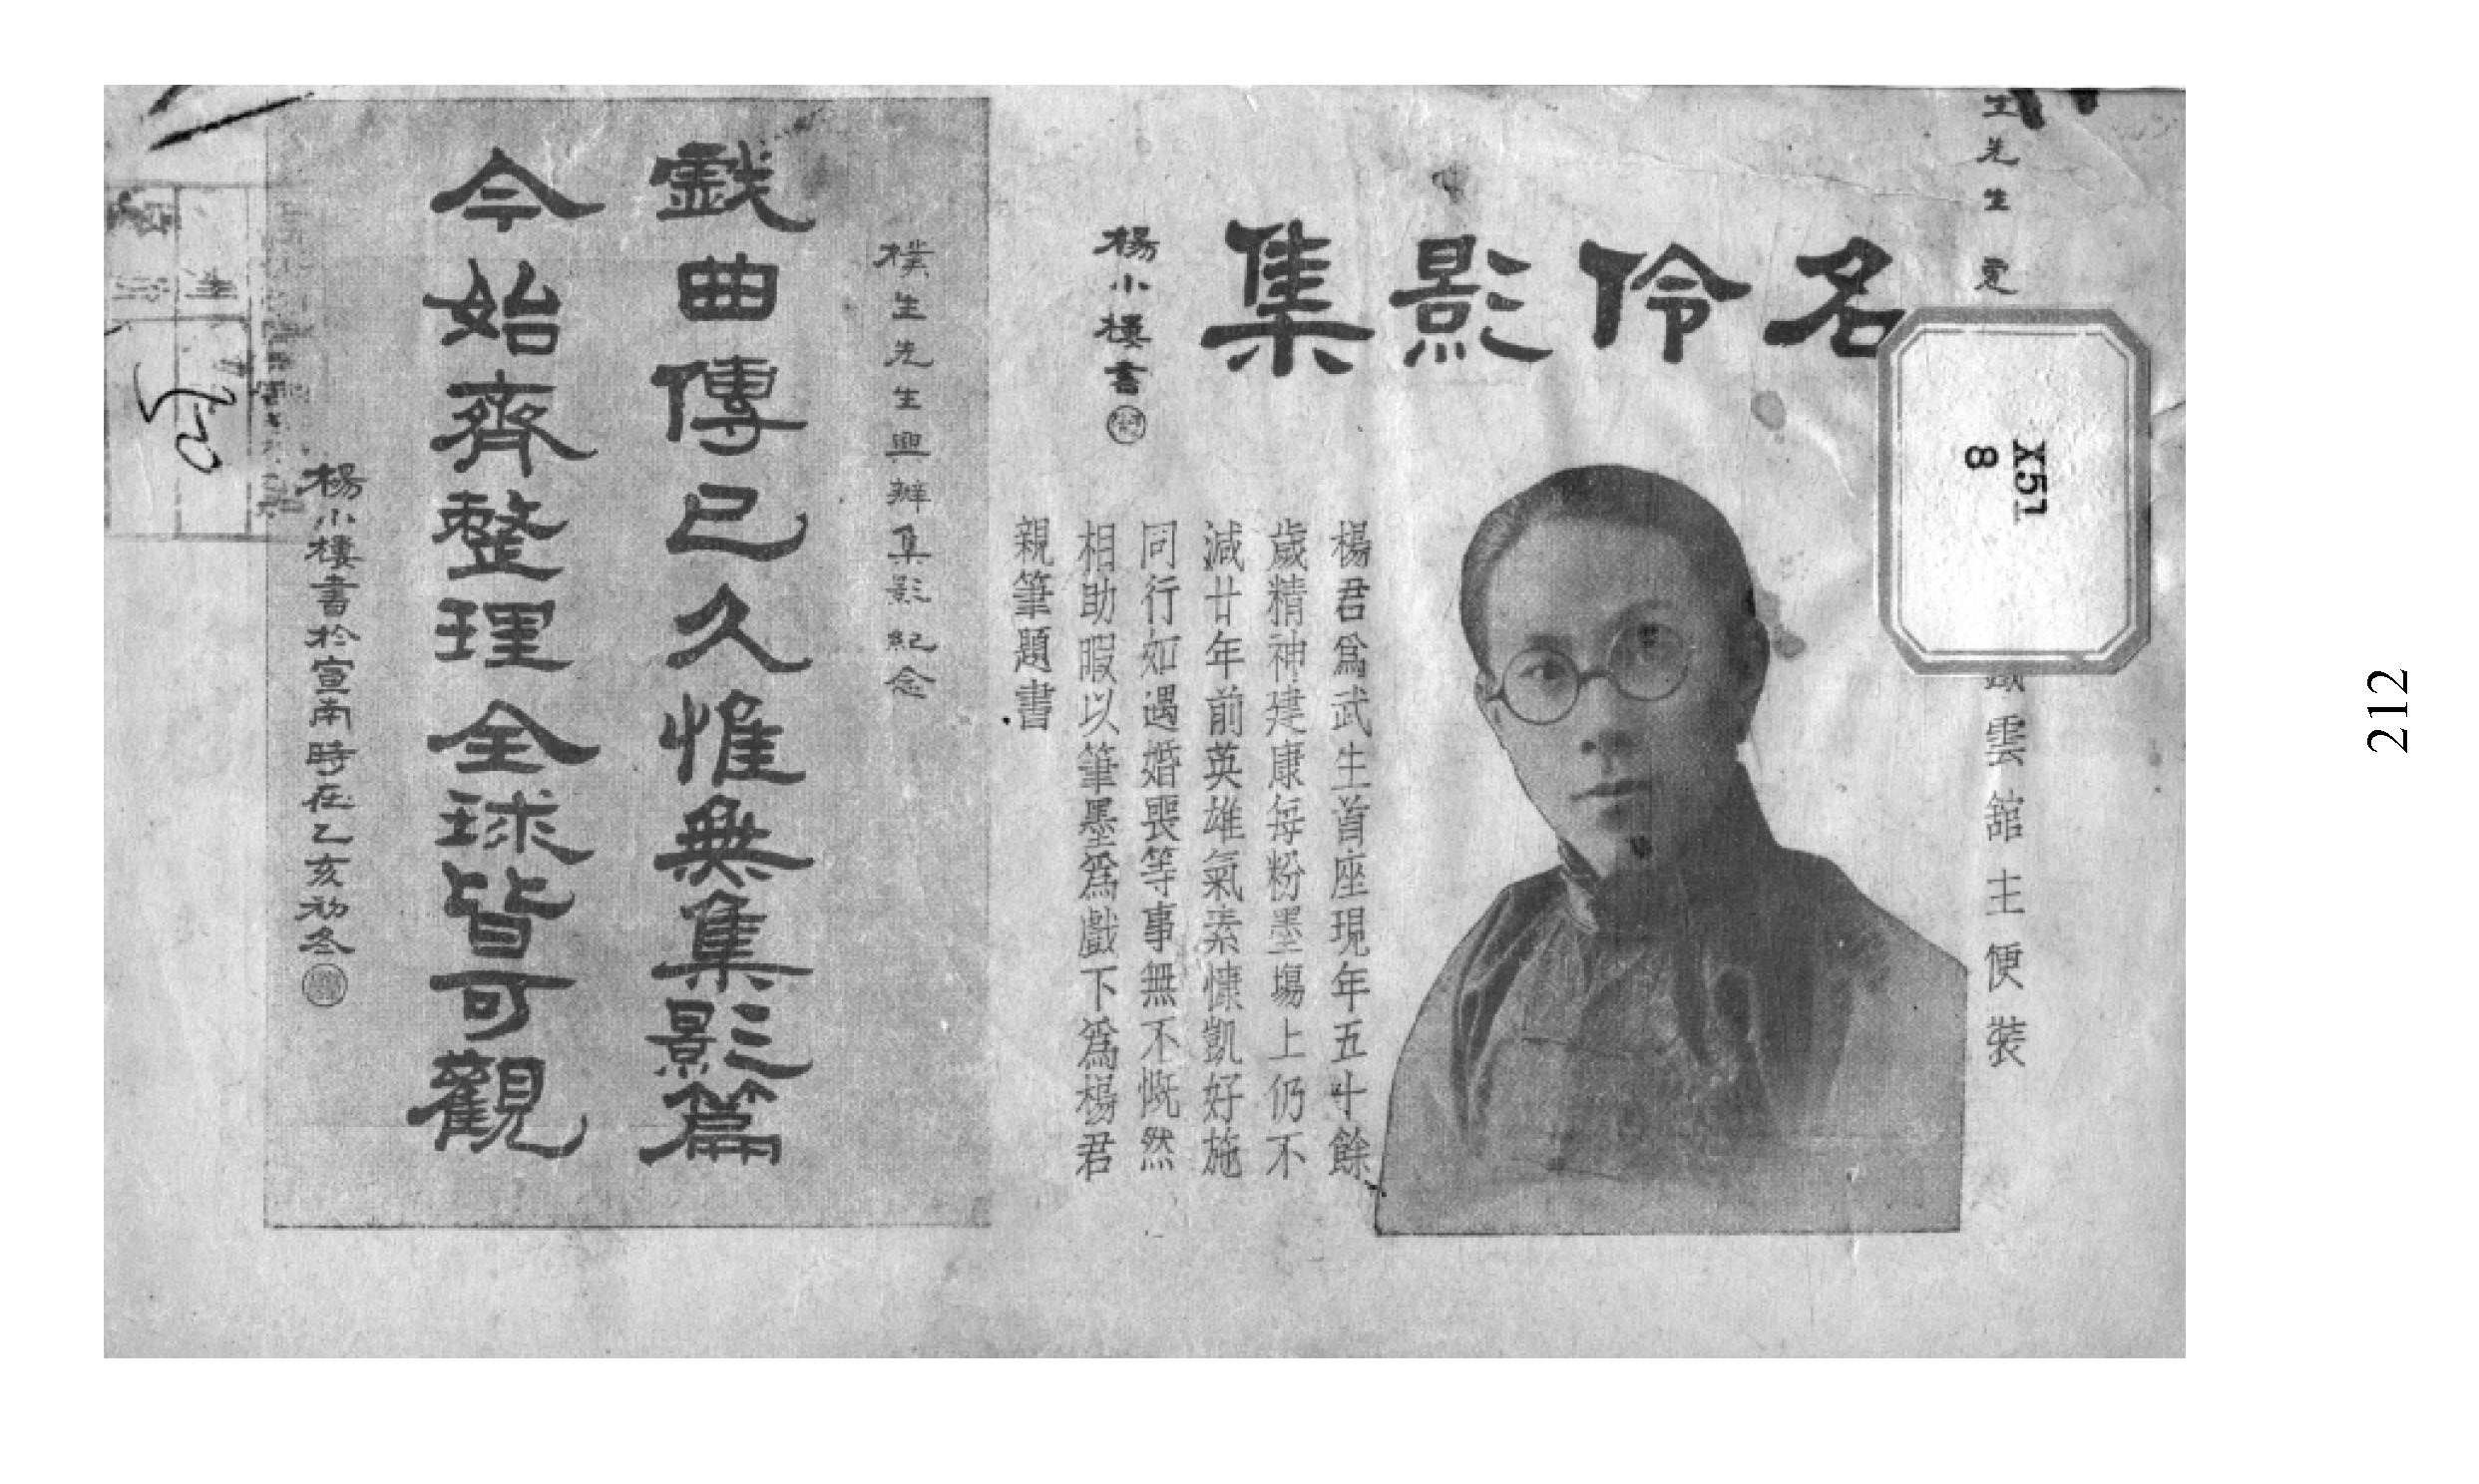 生先生
戲雲舘主便裝
名伶影集
楊小樓書
楊君爲武生首座現年五十餘
歲精神建康每粉墨塲上仍不
減廿年前英雄氣素慷凱好施
同行如遇婚喪等事無不慨然
相助暇以筆墨爲戲下爲楊君
親筆題書
樸生先生興辦集影紀念
戲曲傳已久惟無集影篇
今始齊整理全球皆可觀
楊小樓書於宣南時在乙亥初冬
X51
8
212